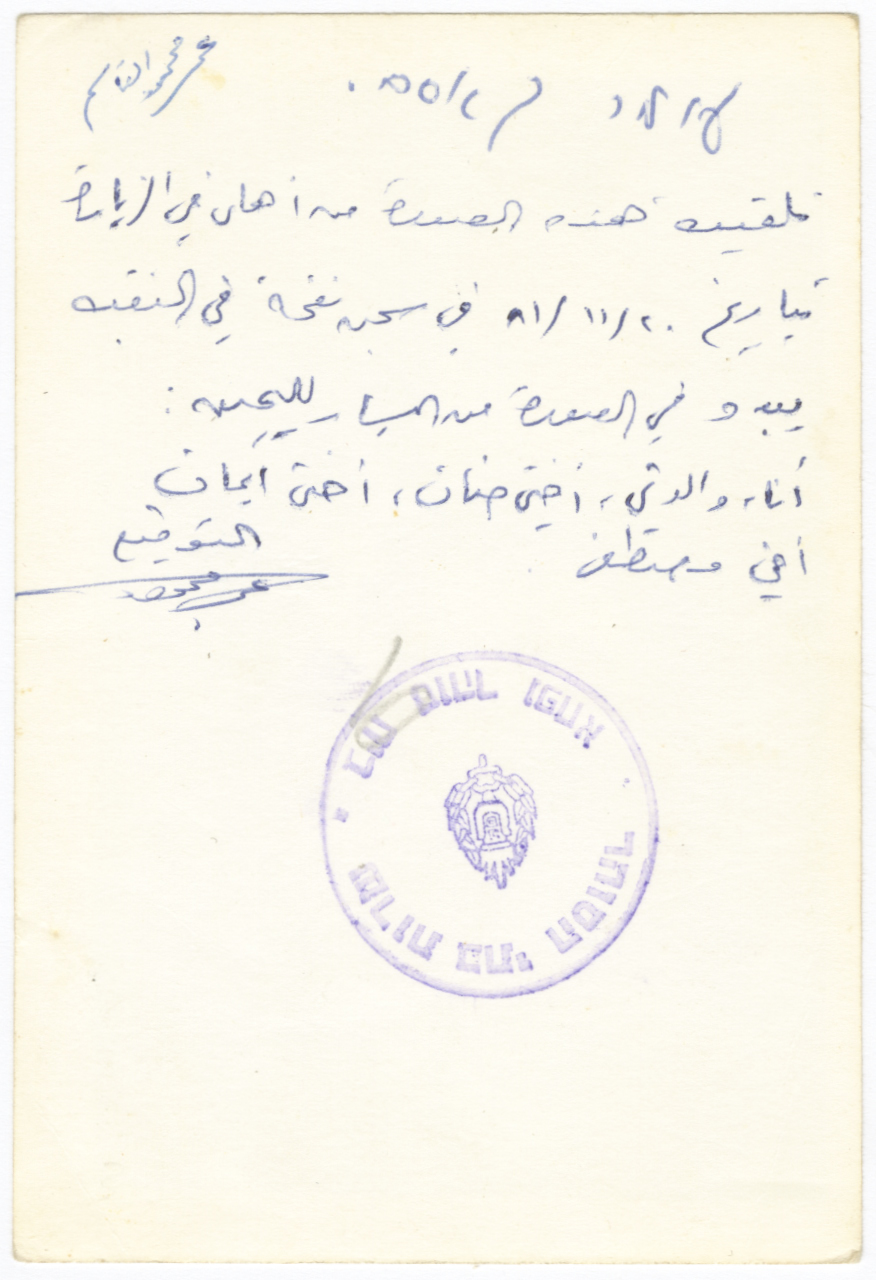 عمر محمود القاسم
تلقيت هذه الصورة من أهلي في الزيارة
بتاريخ ٢٠/١١/٨١ في سجن نفحة في النقب
يبدو في الصورة من اليسار لليمين :
أنا، والدتي، أختي حنان، أختي ايمان
أخي مصطفى
التوقيع
عمر محمود
אגף
שרות בתי הסוהר